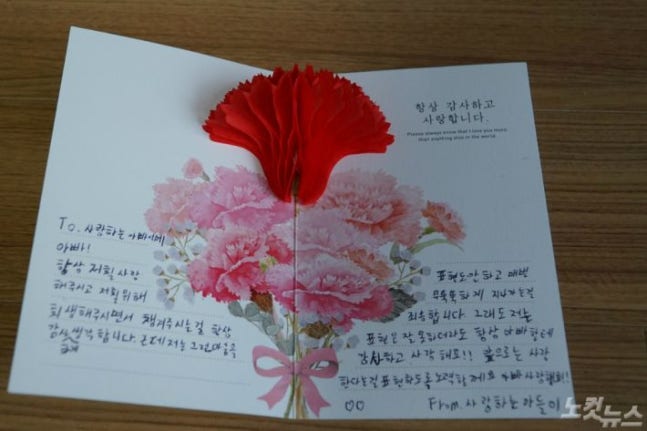 항상 감사하고
사랑합니다.
Please always know that I love you more
than anything else in the world.
To. 사랑하는 아빠에게
아빠!
항상 저희 사랑
해주시고 저희 위해
희생해주시면서 챙겨주시는걸 항상
감사 생각합니다. 근데 저는 그런마음을
표현도안하고 매번
무뚝뚝하게 지나가는걸
죄송합니다. 그래도 저는
표현은 잘 못하더라도 항상 아빠한테
감사하고 사랑해요!! 앞으로는 사랑
한다는걸 표현하도록 노력할께요 아빠 사랑해!!
♡♡ From. 사랑하는 아들이
노컷뉴스